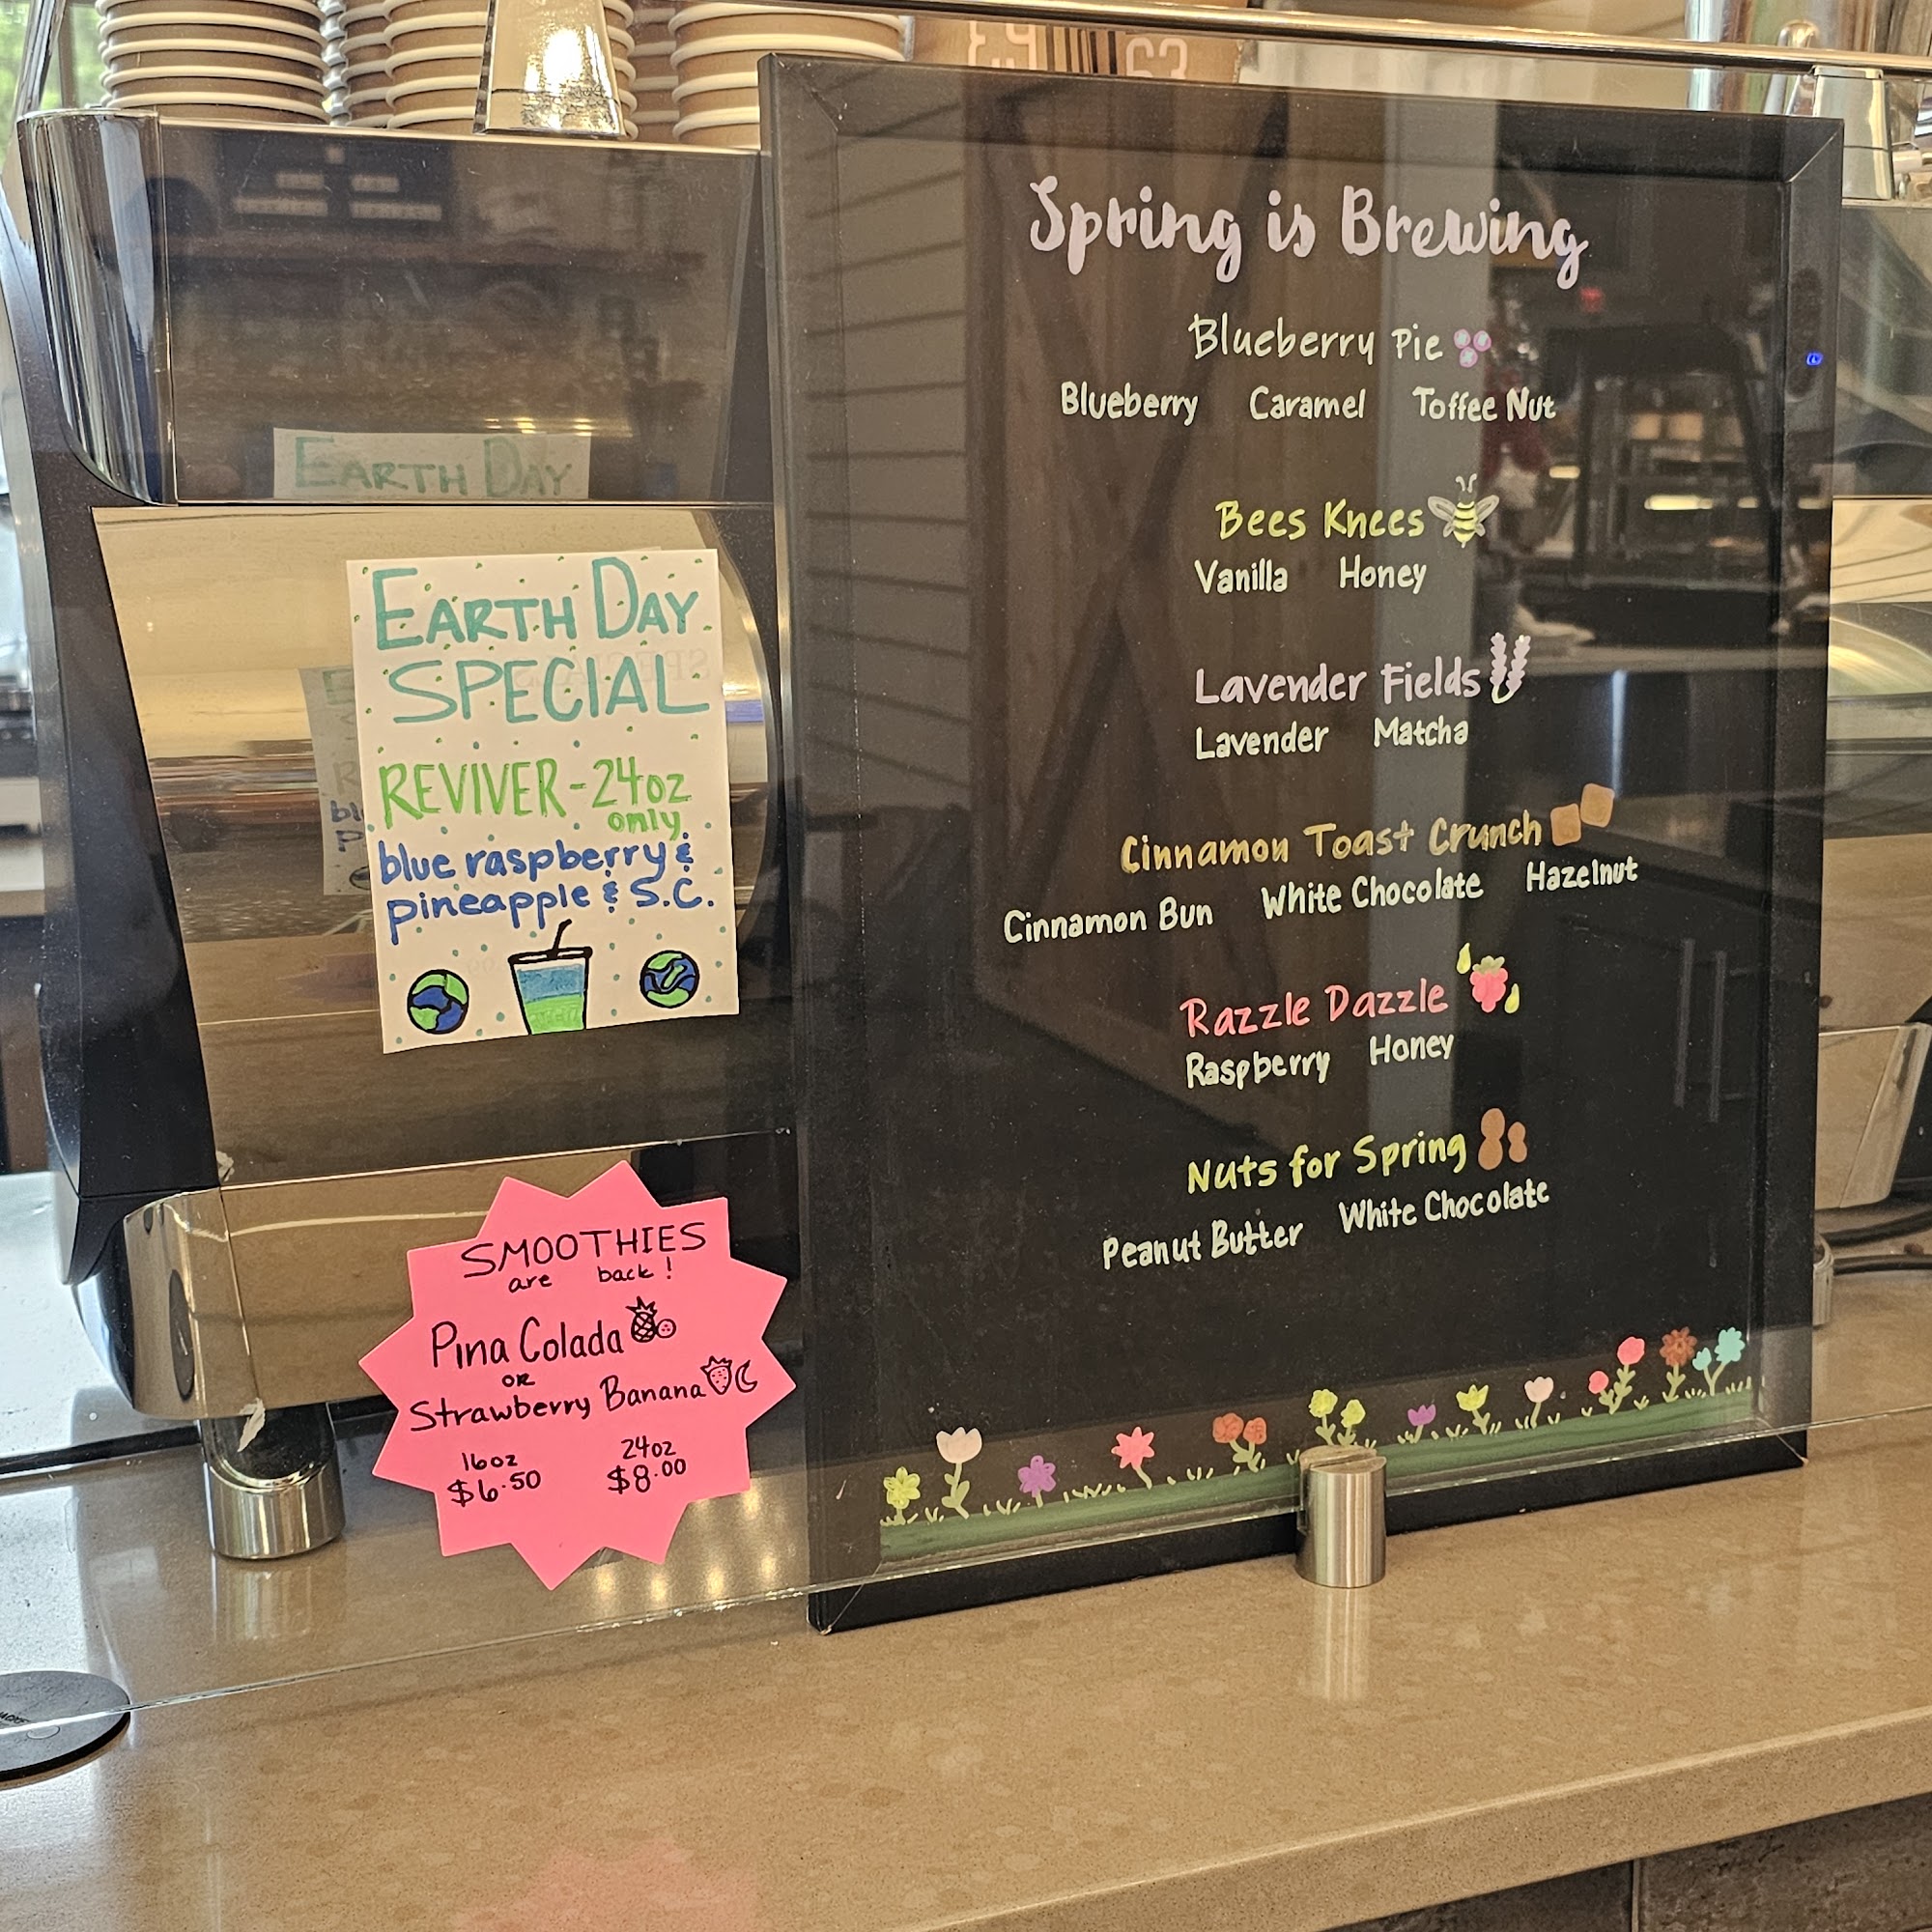 EARTH DAY
EARTH DAY
SPECIAL
REVIVER-24oz
only
blue raspberry &
pineapple & S.C.
SMOOTHIES
are back!
Pina Colada
OR
Strawberry Banana
16oz 24oz
$6.50 $8.00
Spring is Brewing
Blueberry Pie
Blueberry Caramel Toffee Nut
Bees Knees
Vanilla Honey
Lavender Fields
Lavender Matcha
Cinnamon Toast Crunch
Cinnamon Bun White Chocolate Hazelnut
Razzle Dazzle
Raspberry Honey
Nuts for Spring
Peanut Butter White Chocolate